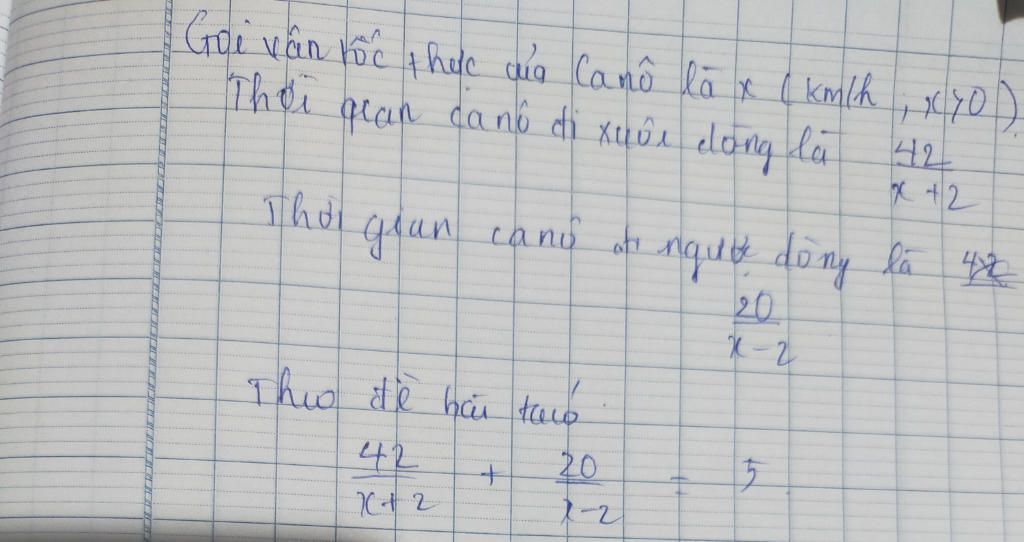 Gọi vân vốc thực của Canô là x (km/h, x>0)
Thời gian canô đi xuôi dòng là 42/(x+2)
Thời gian canô đi ngược dòng là
20/(x-2)
Theo đề bài ta có
42/(x+2) + 20/(x-2) = 5